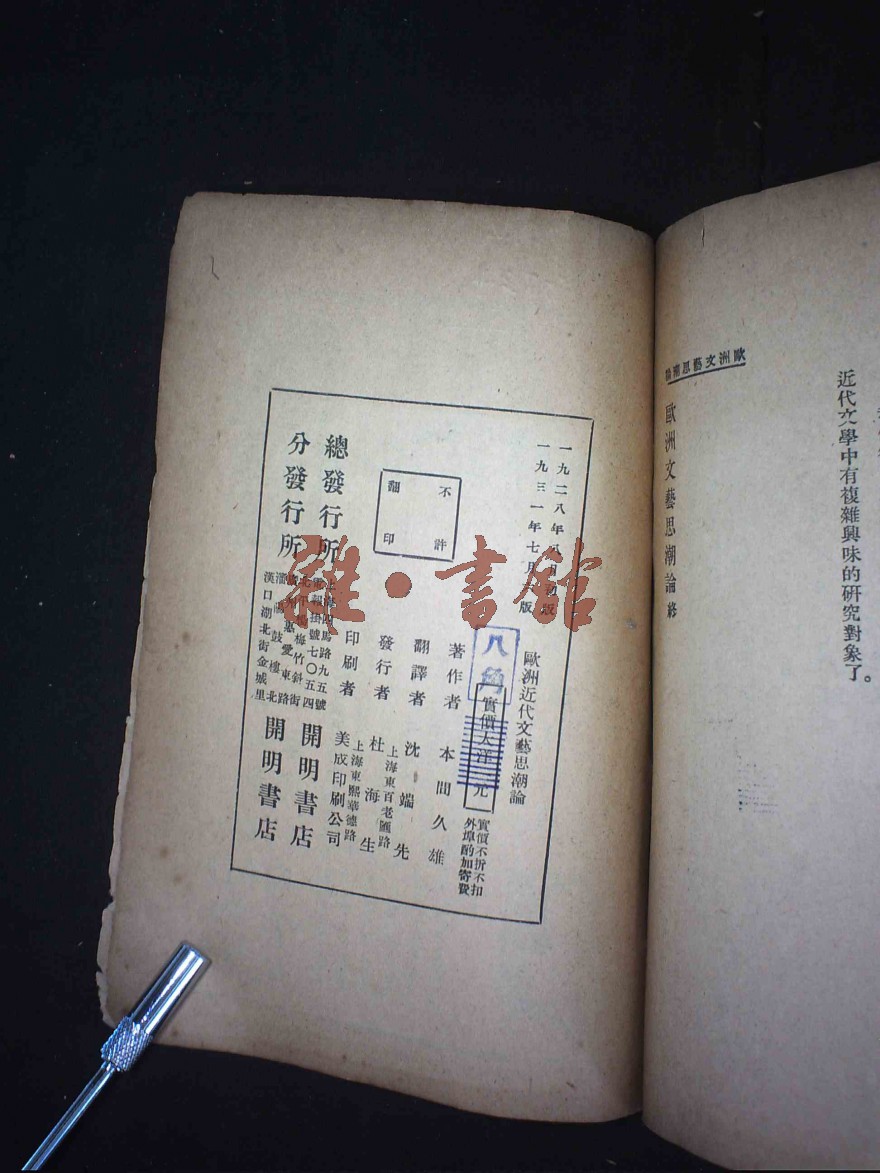 近代文學中有複雜興味的研究對象了。
歐洲文藝思潮
歐洲文藝思潮論終
一九二八年 月 版
一九三一年七月 版
歐洲近代文藝思潮論
八角
實價大洋 元
實價不折不扣
外埠酌加寄費
著作者 本間久雄
翻譯者 沈端先
發行者 杜海生
上海東百老匯路
印刷者 美成印刷公司
上海東熙華德路
不許
翻印
總發行所 上海四馬路九五號 開明書店
電報掛號七〇五四
分發行所 北平楊梅竹斜街 開明書店
惠愛東路
鼓樓北
漢口湖北街金城里
雜·書館